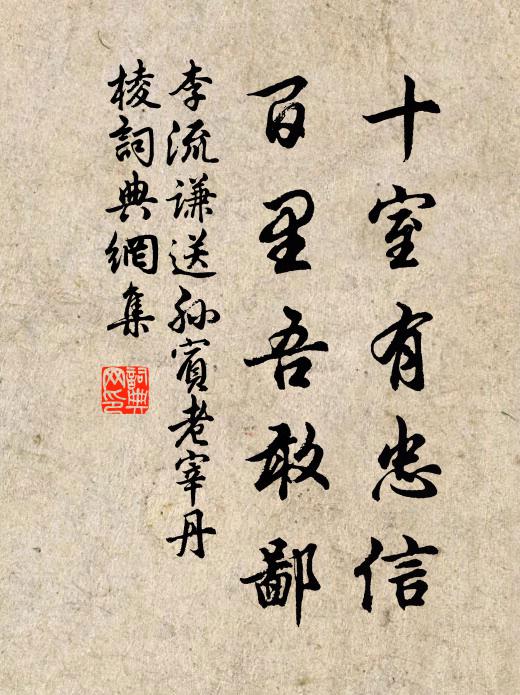 十室有忠信
百里吾敢鄙
李流謙送孙賓老宰丹
棱詞典網集
詞典
网印